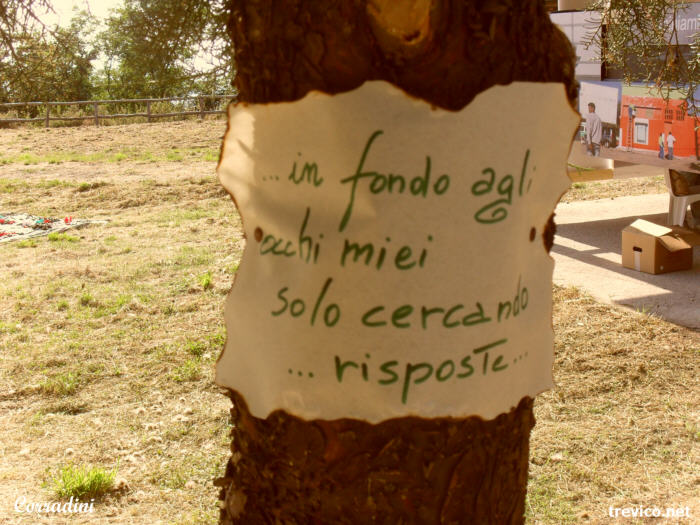 ...in fondo agli
occhi miei
solo cercando
...risposte...
Corradini
trevico.net